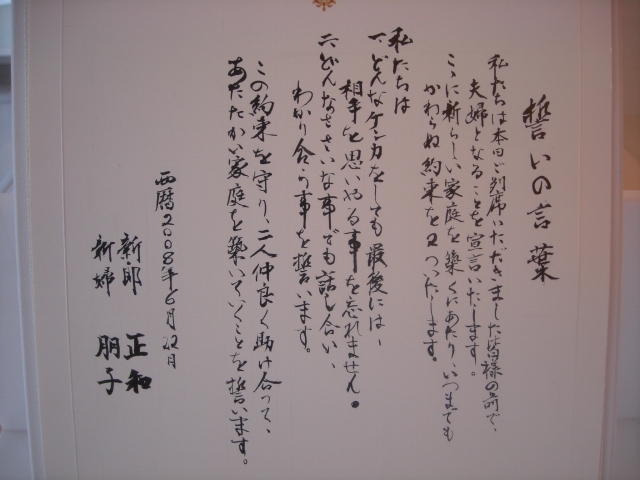 誓いの言葉
私たちは本日ご列席いただきました皆様の前で、
夫婦となることを宣言いたします。
こゝに新らしい家庭を築くにあたり、いつまでも
かわらぬ約束を2ついたします。
私たちは
一、どんなケンカをしても最後には、
相手を思いやる事を忘れません。
二、どんなささいな事でも話し合い、
わかり合う事を誓います。
この約束を守り、二人仲良く助け合って、
あたたかい家庭を築いていくことを誓います。
西暦2008年6月22日
新郎 正和
新婦 朋子